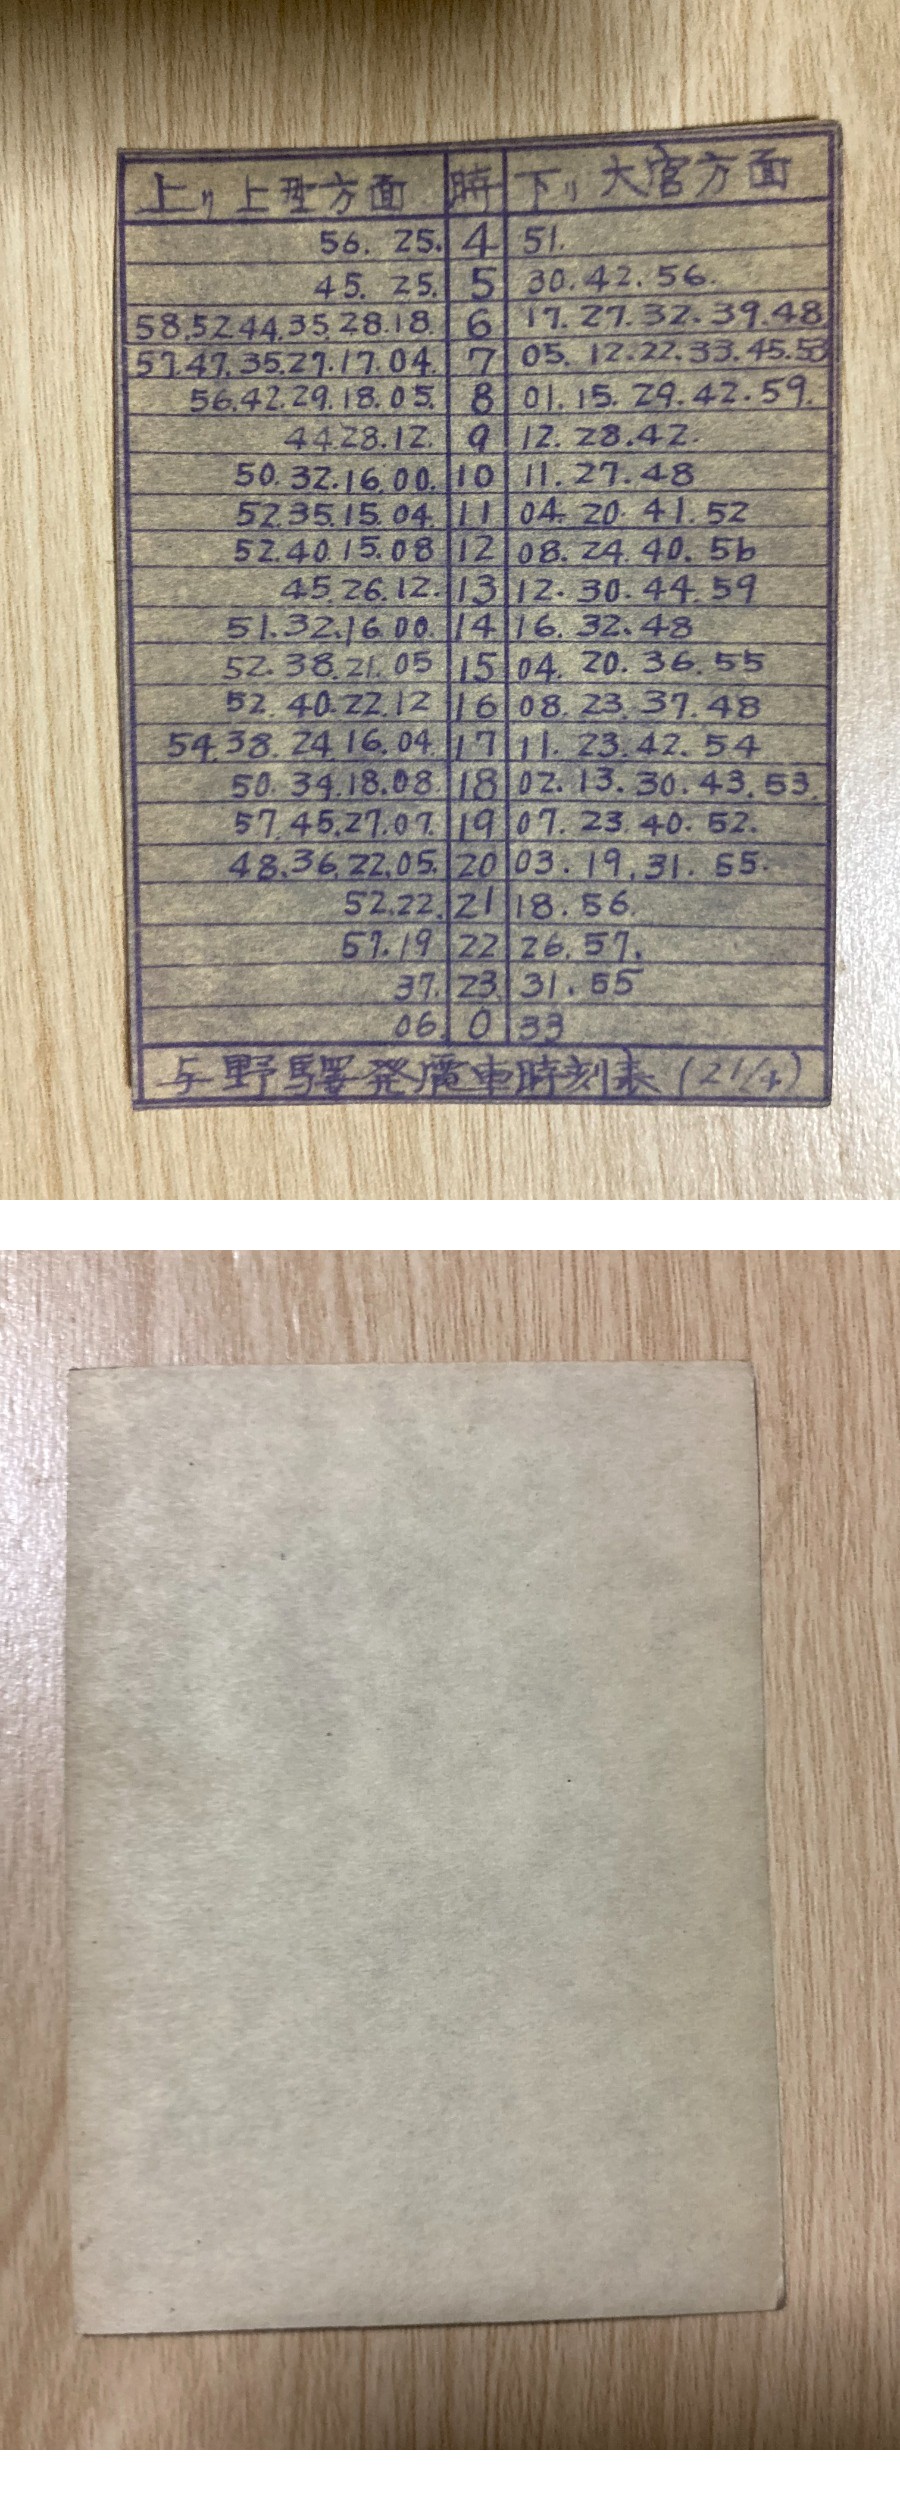 上り 上野方面 時 下り 大宮方面
56. 25. 4 51.
45. 25. 5 30.42.56.
58.52.44.35.28.18. 6 17.27.32.39.48
57.47.35.27.17.04. 7 05.12.22.33.45.53
56.42.29.18.05. 8 01.15.29.42.59.
44.28.12. 9 12.28.42.
50.32.16.00. 10 11.27.48
52.35.15.04. 11 04.20.41.52
52.40.15.08 12 08.24.40.56
45.26.12. 13 12.30.44.59
51.32.16.00. 14 16.32.48
52.38.21.05 15 04.20.36.55
52.40.22.12 16 08.23.37.48
54.38.24.16.04. 17 11.23.42.54
50.34.18.08. 18 02.13.30.43.53.
57.45.27.07. 19 07.23.40.52.
48.36.22.05. 20 03.19.31.55.
52.22. 21 18.56.
57.19 22 26.57.
37. 23. 31.55
06. 0 33
与野驛発電車時刻表